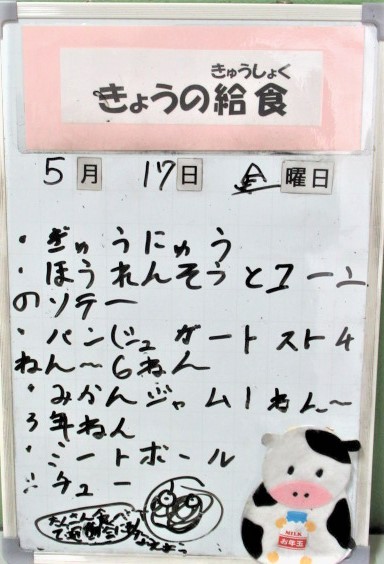 きゅうしょく
きょうの給食
5月 17日 金曜日
・ぎゅうにゅう
・ほうれんそうとコーン
のソテー
・パンじュガートスト4
ねん〜6ねん
・みかんジャム1ねん〜
3年ねん
・ミートボール
シチュー
たくさん食べ
MILK
お年玉